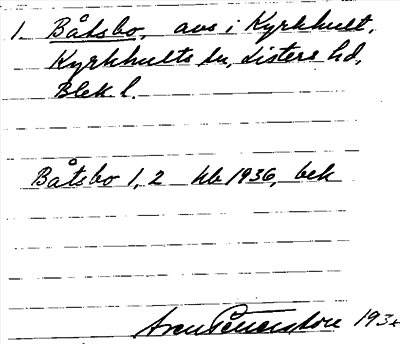 1. Båtsbo, avs i Kyrkhult,
Kyrkhults sn, Listers hd,
Blek l.
Båtsbo 1, 2 kb 1936, bek
193